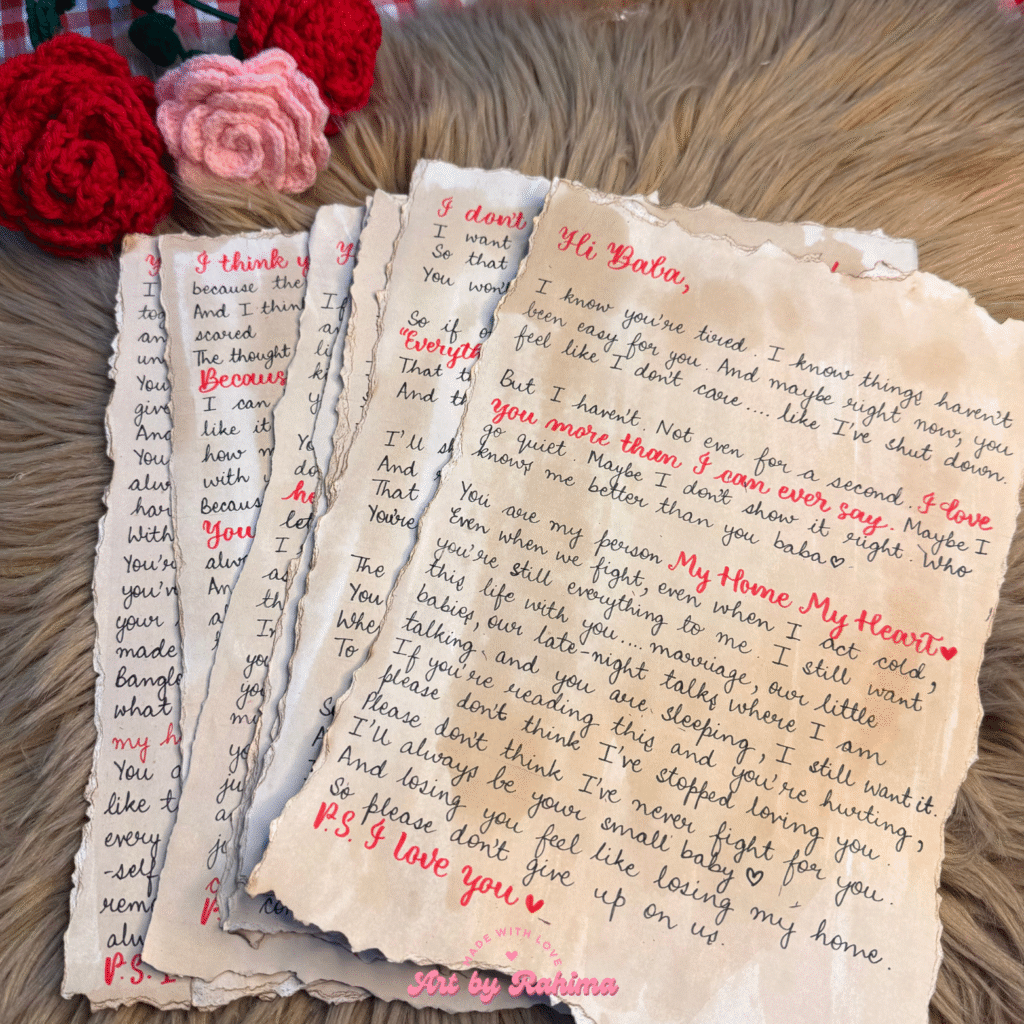 Hi Baba,
I know you're tired. I know things haven't
been easy for you. And maybe right now, you
feel like I don't care.... like I've shut down.
But I haven't. Not even for a second. I love
you more than I can ever say. Maybe I
go quiet. Maybe I don't show it right. Who
knows me better than you baba♡.
You are my person My Home My Heart♥
Even when we fight, even when I act cold,
you're still everything to me. I still want
this life with you.... marriage, our little
babies, our late-night talks where I am
talking and you are sleeping, I still want it.
If you're reading this and you're hurting,
please don't think I've stopped loving you.
Please don't think I've never fight for you.
I'll always be your small baby♡
And losing you feel like losing my home.
So please don't give up on us.
P.S. I love you ♥
I don't
I want
So that
You won't
So if
"Everyth
That
And
I'll
And
That
You're
The
You
Whe
To
I think y
because the
And I thin
scared
The thought
Becaus
I can
like it
how m
with
Becaus
You
alw
You
giv
And
You
alw
har
With
You're
your
made
Bangl
what
my h
You a
like t
every
-self
rem
alw
P.S. I
MADE WITH LOVE
Art by Rahima